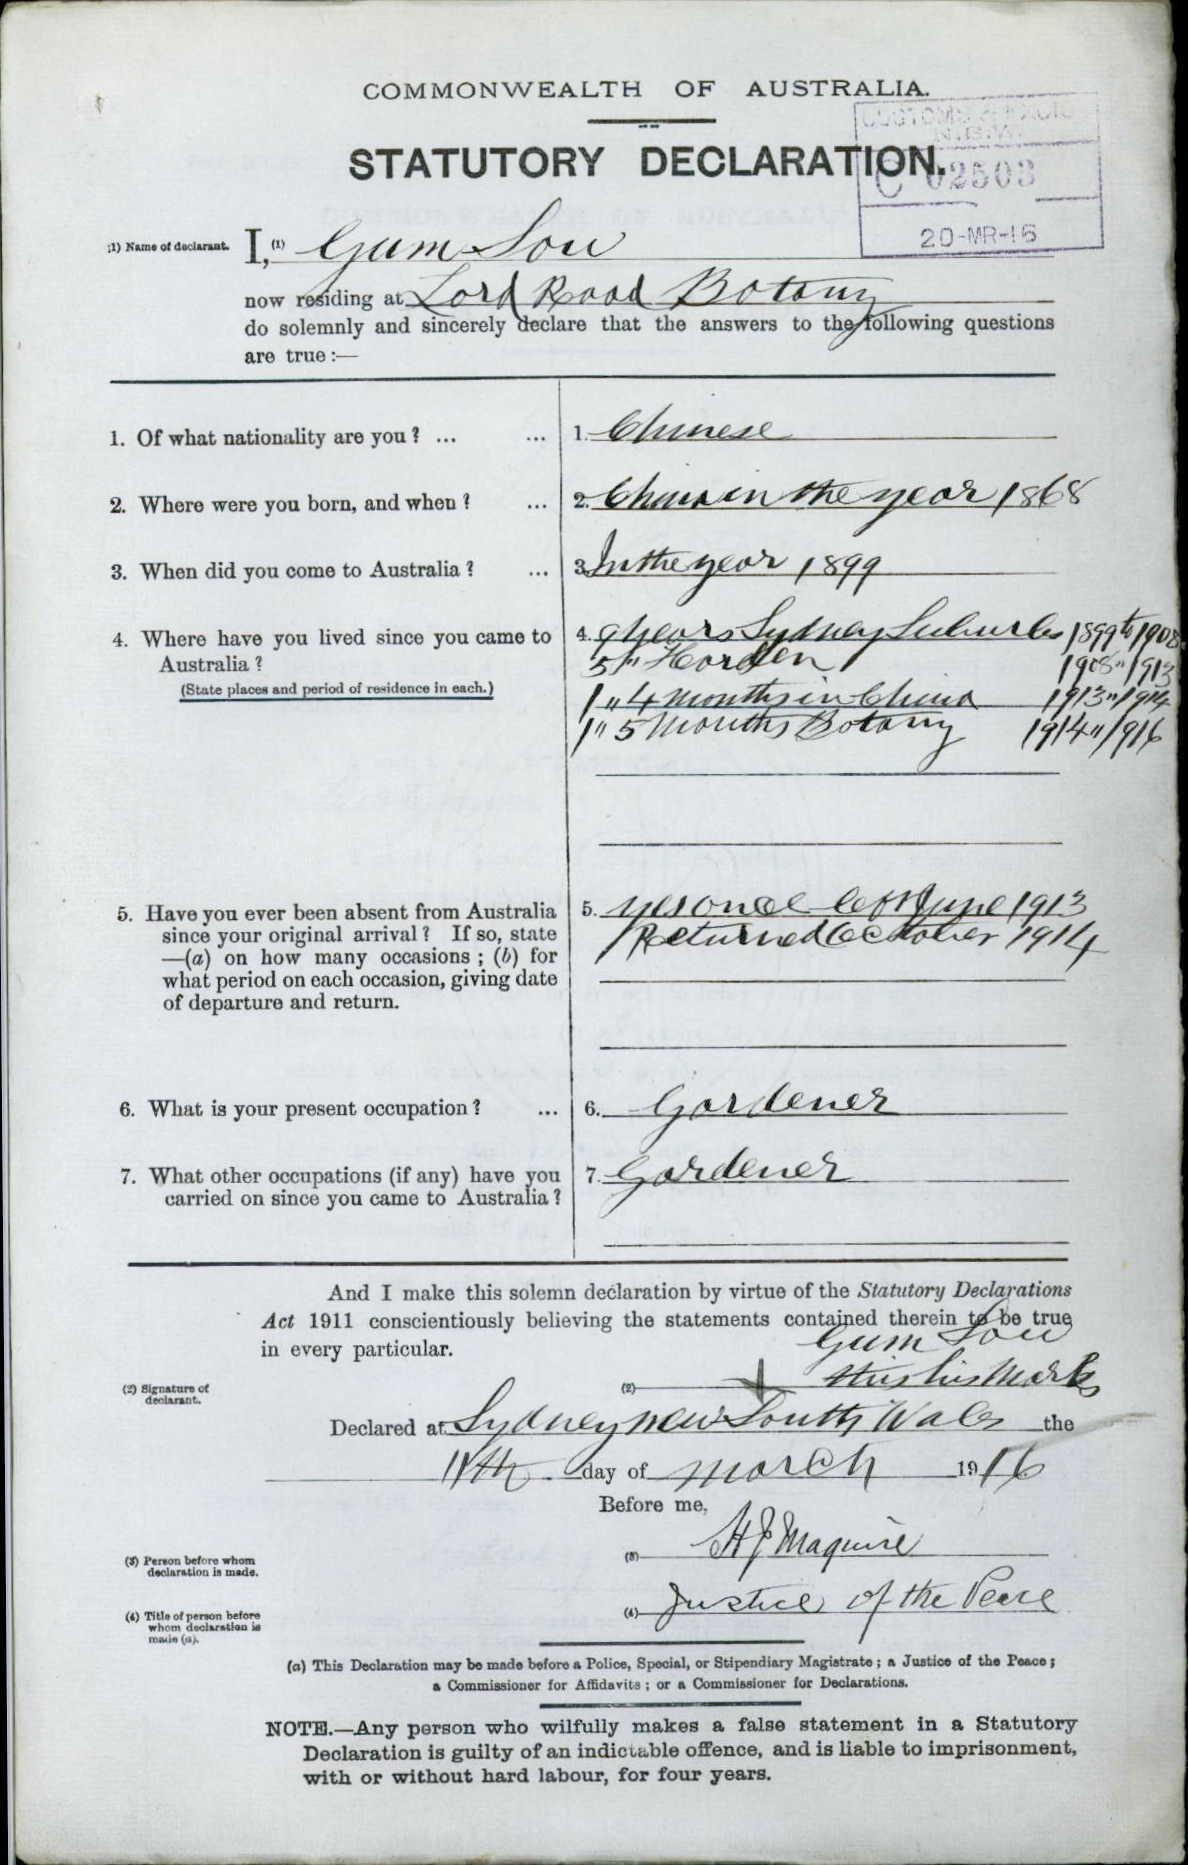 COMMONWEALTH OF AUSTRALIA.
STATUTORY DECLARATION.
CUSTOMS & EXCISE
N.S.W.
C 02503
20-MR-16
(1) Name of declarant.
I, (1) Gum Sow
now residing at Lord Road Botany
do solemnly and sincerely declare that the answers to the following questions
are true :—
1. Of what nationality are you ? ... ... 1. Chinese
2. Where were you born, and when ? ... 2. China in the year 1868
3. When did you come to Australia ? ... 3. In the year 1899
4. Where have you lived since you came to 4. 9 years Sydney Suburbs 1899 to 1908
Australia ? 5 " Harden 1908 " 1913
(State places and period of residence in each.) 1 " 4 months in China 1913 " 1914
1 " 5 Months Botany 1914 " 1916
5. Have you ever been absent from Australia 5. yes once left June 1913
since your original arrival ? If so, state Returned October 1914
—(a) on how many occasions ; (b) for
what period on each occasion, giving date
of departure and return.
6. What is your present occupation ? ... 6. Gardener
7. What other occupations (if any) have you 7. Gardener
carried on since you came to Australia ?
And I make this solemn declaration by virtue of the Statutory Declarations
Act 1911 conscientiously believing the statements contained therein to be true
in every particular.
Gum Sow
(2) Signature of declarant.
(2) this his Mark
Declared at Sydney new South Wales the
11th day of March 1916
Before me,
(3) Person before whom declaration is made.
(3) H J Maguire
(4) Title of person before whom declaration is made (a).
(4) Justice of the Peace
(a) This Declaration may be made before a Police, Special, or Stipendiary Magistrate ; a Justice of the Peace ;
a Commissioner for Affidavits ; or a Commissioner for Declarations.
NOTE.—Any person who wilfully makes a false statement in a Statutory
Declaration is guilty of an indictable offence, and is liable to imprisonment,
with or without hard labour, for four years.